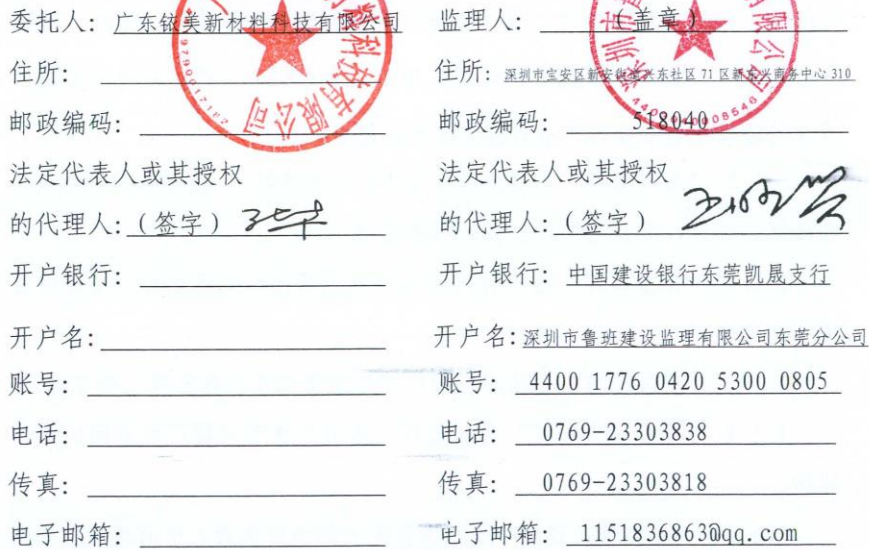 委托人: 广东铱美新材料科技有限公司
住所:
邮政编码:
法定代表人或其授权
的代理人:(签字)
开户银行:
开户名:
账号:
电话:
传真:
电子邮箱:
监理人: (盖章)
住所: 深圳市宝安区新安街道兴东社区71区新东兴商务中心310
邮政编码: 518040
法定代表人或其授权
的代理人:(签字)
开户银行: 中国建设银行东莞凯晟支行
开户名:深圳市鲁班建设监理有限公司东莞分公司
账号: 4400 1776 0420 5300 0805
电话: 0769-23303838
传真: 0769-23303818
电子邮箱: 1151836863@qq.com